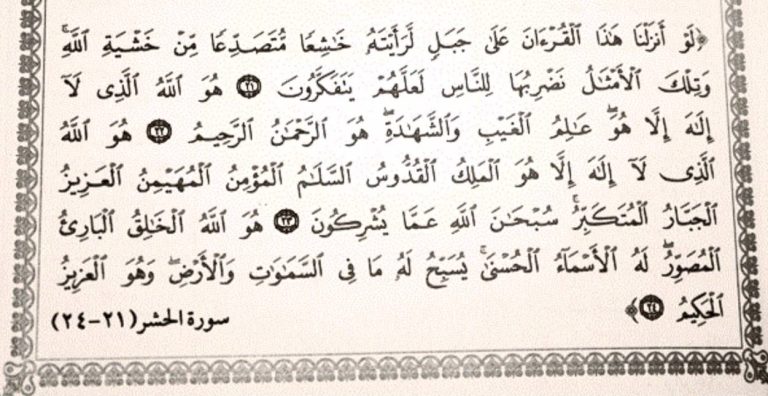 ﴿لَوْ أَنزَلْنَا هَٰذَا ٱلْقُرْءَانَ عَلَىٰ جَبَلٍ لَّرَأَيْتَهُۥ خَٰشِعًا مُّتَصَدِّعًا مِّنْ خَشْيَةِ ٱللَّهِۚ
وَتِلْكَ ٱلْأَمْثَٰلُ نَضْرِبُهَا لِلنَّاسِ لَعَلَّهُمْ يَتَفَكَّرُونَ ٢١ هُوَ ٱللَّهُ ٱلَّذِى لَآ
إِلَٰهَ إِلَّا هُوَۖ عَٰلِمُ ٱلْغَيْبِ وَٱلشَّهَٰدَةِۖ هُوَ ٱلرَّحْمَٰنُ ٱلرَّحِيمُ ٢٢ هُوَ ٱللَّهُ
ٱلَّذِى لَآ إِلَٰهَ إِلَّا هُوَ ٱلْمَلِكُ ٱلْقُدُّوسُ ٱلسَّلَٰمُ ٱلْمُؤْمِنُ ٱلْمُهَيْمِنُ ٱلْعَزِيزُ
ٱلْجَبَّارُ ٱلْمُتَكَبِّرُۚ سُبْحَٰنَ ٱللَّهِ عَمَّا يُشْرِكُونَ ٢٣ هُوَ ٱللَّهُ ٱلْخَٰلِقُ ٱلْبَارِئُ
ٱلْمُصَوِّرُۖ لَهُ ٱلْأَسْمَآءُ ٱلْحُسْنَىٰۚ يُسَبِّحُ لَهُۥ مَا فِى ٱلسَّمَٰوَٰتِ وَٱلْأَرْضِۖ وَهُوَ ٱلْعَزِيزُ
ٱلْحَكِيمُ ٢٤﴾ سورة الحشر (٢١-٢٤)